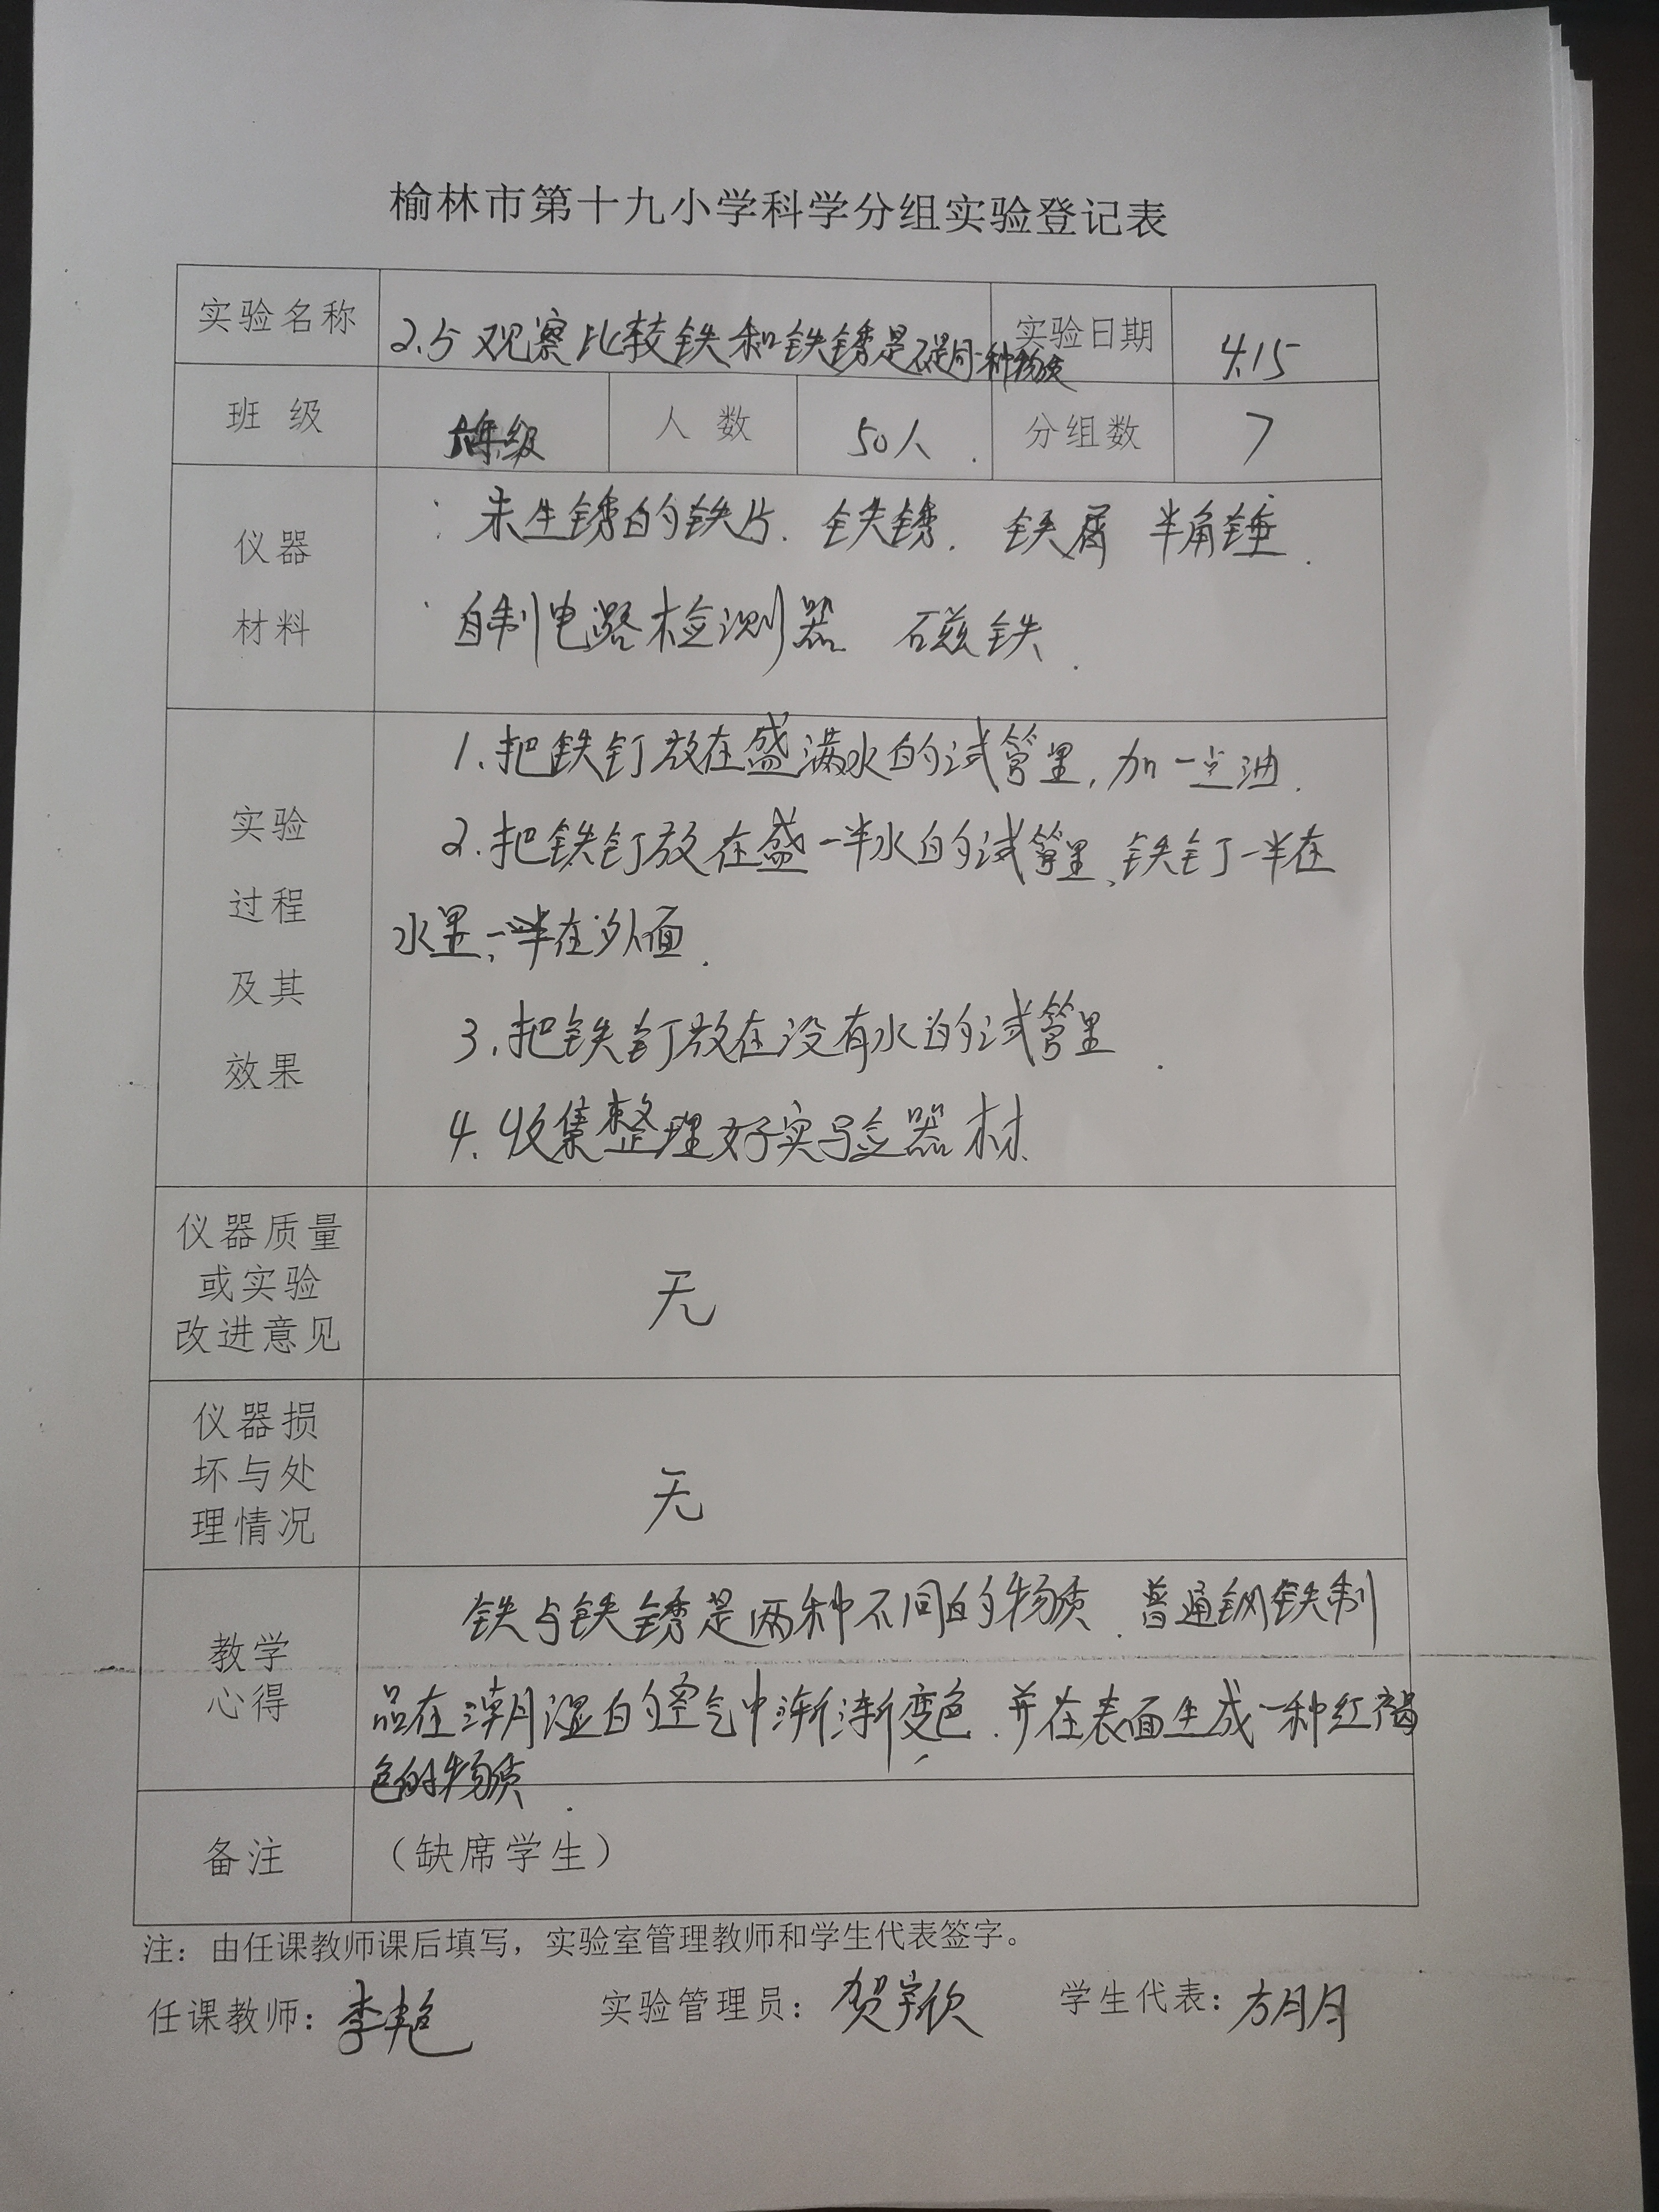 榆林市第十九小学科学分组实验登记表
实验名称 2.5 观察比较铁和铁锈是不是同一种物质 实验日期 4.15
班 级 六年级 人 数 50人. 分组数 7
仪器 未生锈的铁片. 铁锈. 铁屑 羊角锤.
材料 自制电路检测器 磁铁.
实验 1.把铁钉放在盛满水的试管里,加一点油.
过程 2.把铁钉放在盛一半水的试管里、铁钉一半在
水里、一半在外面.
及其 3.把铁钉放在没有水的试管里.
效果 4.收集整理好实验器材
仪器质量
或实验 无
改进意见
仪器损
坏与处 无
理情况
教学 铁与铁锈是两种不同的物质.普通钢铁制
心得 品在潮湿的空气中渐渐变色.并在表面生成一种红褐
色的物质.
备注 (缺席学生)
注：由任课教师课后填写，实验室管理教师和学生代表签字。
任课教师：李艳 实验管理员：贺宇欣 学生代表：方月月